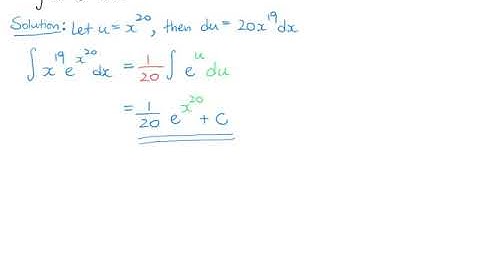 Solution: Let u = x^20, then du = 20x^19 dx
∫ x^19 e^x^20 dx = 1/20 ∫ e^u du
= 1/20 e^x^20 + C